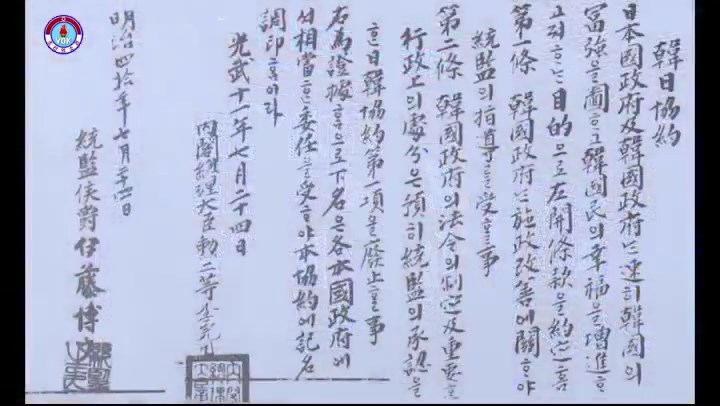 VOK
韓日協約
日本國政府及韓國政府ᄂᆞᆫ速히韓國의
富强을圖ᄒᆞ고韓國民의幸福을增進ᄒᆞ
고져ᄒᆞᄂᆞᆫ目的으로左開條款을約定홈
第一條 韓國政府ᄂᆞᆫ施政改善에關ᄒᆞ야
統監의指導를受ᄒᆞᆯ事
第二條 韓國政府의法令의制定及重要ᄒᆞᆫ
行政上의處分은預히統監의承認을
ᄒᆞᆫ日韓協約第一項을廢止ᄒᆞᆯ事
右爲證據홈으로下名은各本國政府에
셔相當ᄒᆞᆫ委任을受ᄒᆞ야本協約에記名
調印홈이라
光武十一年七月二十四日
內閣總理大臣勳二等李完用
明治四拾年七月二十四日
統監侯爵伊藤博文